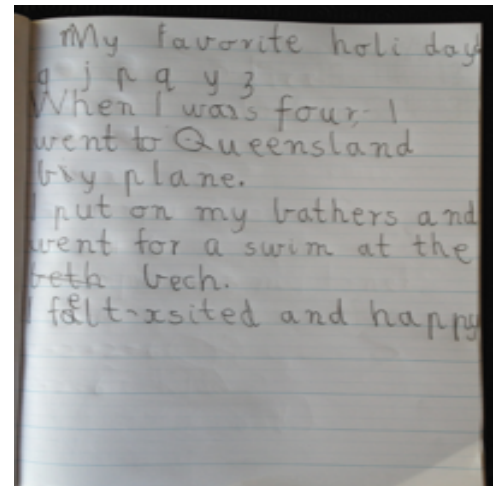 My favorite holi day
g j p q y z
When I was four, I
went to Queensland
by plane.
I put on my bathers and
went for a swim at the
beth bech.
I felt xsited and happy